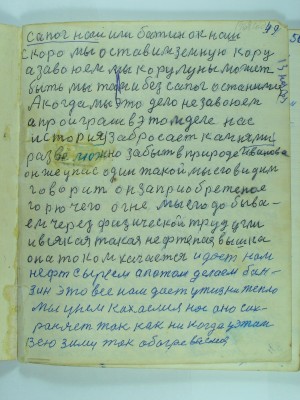 49
сапог нам или ботинок нам
скоро мы оставим земную кору
а завоюем мы кору луны может
быть мы там и без сапог останимся
А когда мы это дело незавоюем
а проиграв в этом деле нас
история забросает камнями
разве можно забыть природе
он же у нас один такой мы с говидим
говорит он за приобретеное
горючего огне. мы его добыва-
ем через физической труд угли
и всякая такая нефтеная вышка
она током кагается и дает нам
нефт сырьем а потом делаем бен-
зин это все нам дает у жизни тепло
мы у ним кахаемся нос оно сох-
раняет так как ни когда у этом
всю зиму так обогреваемся